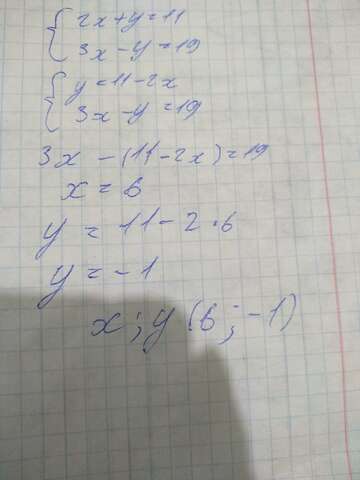 { 2x+y=11
3x-y=19
{ y=11-2x
3x-y=19
3x-(11-2x)=19
x=6
y=11-2·6
y=-1
x;y (6;-1)